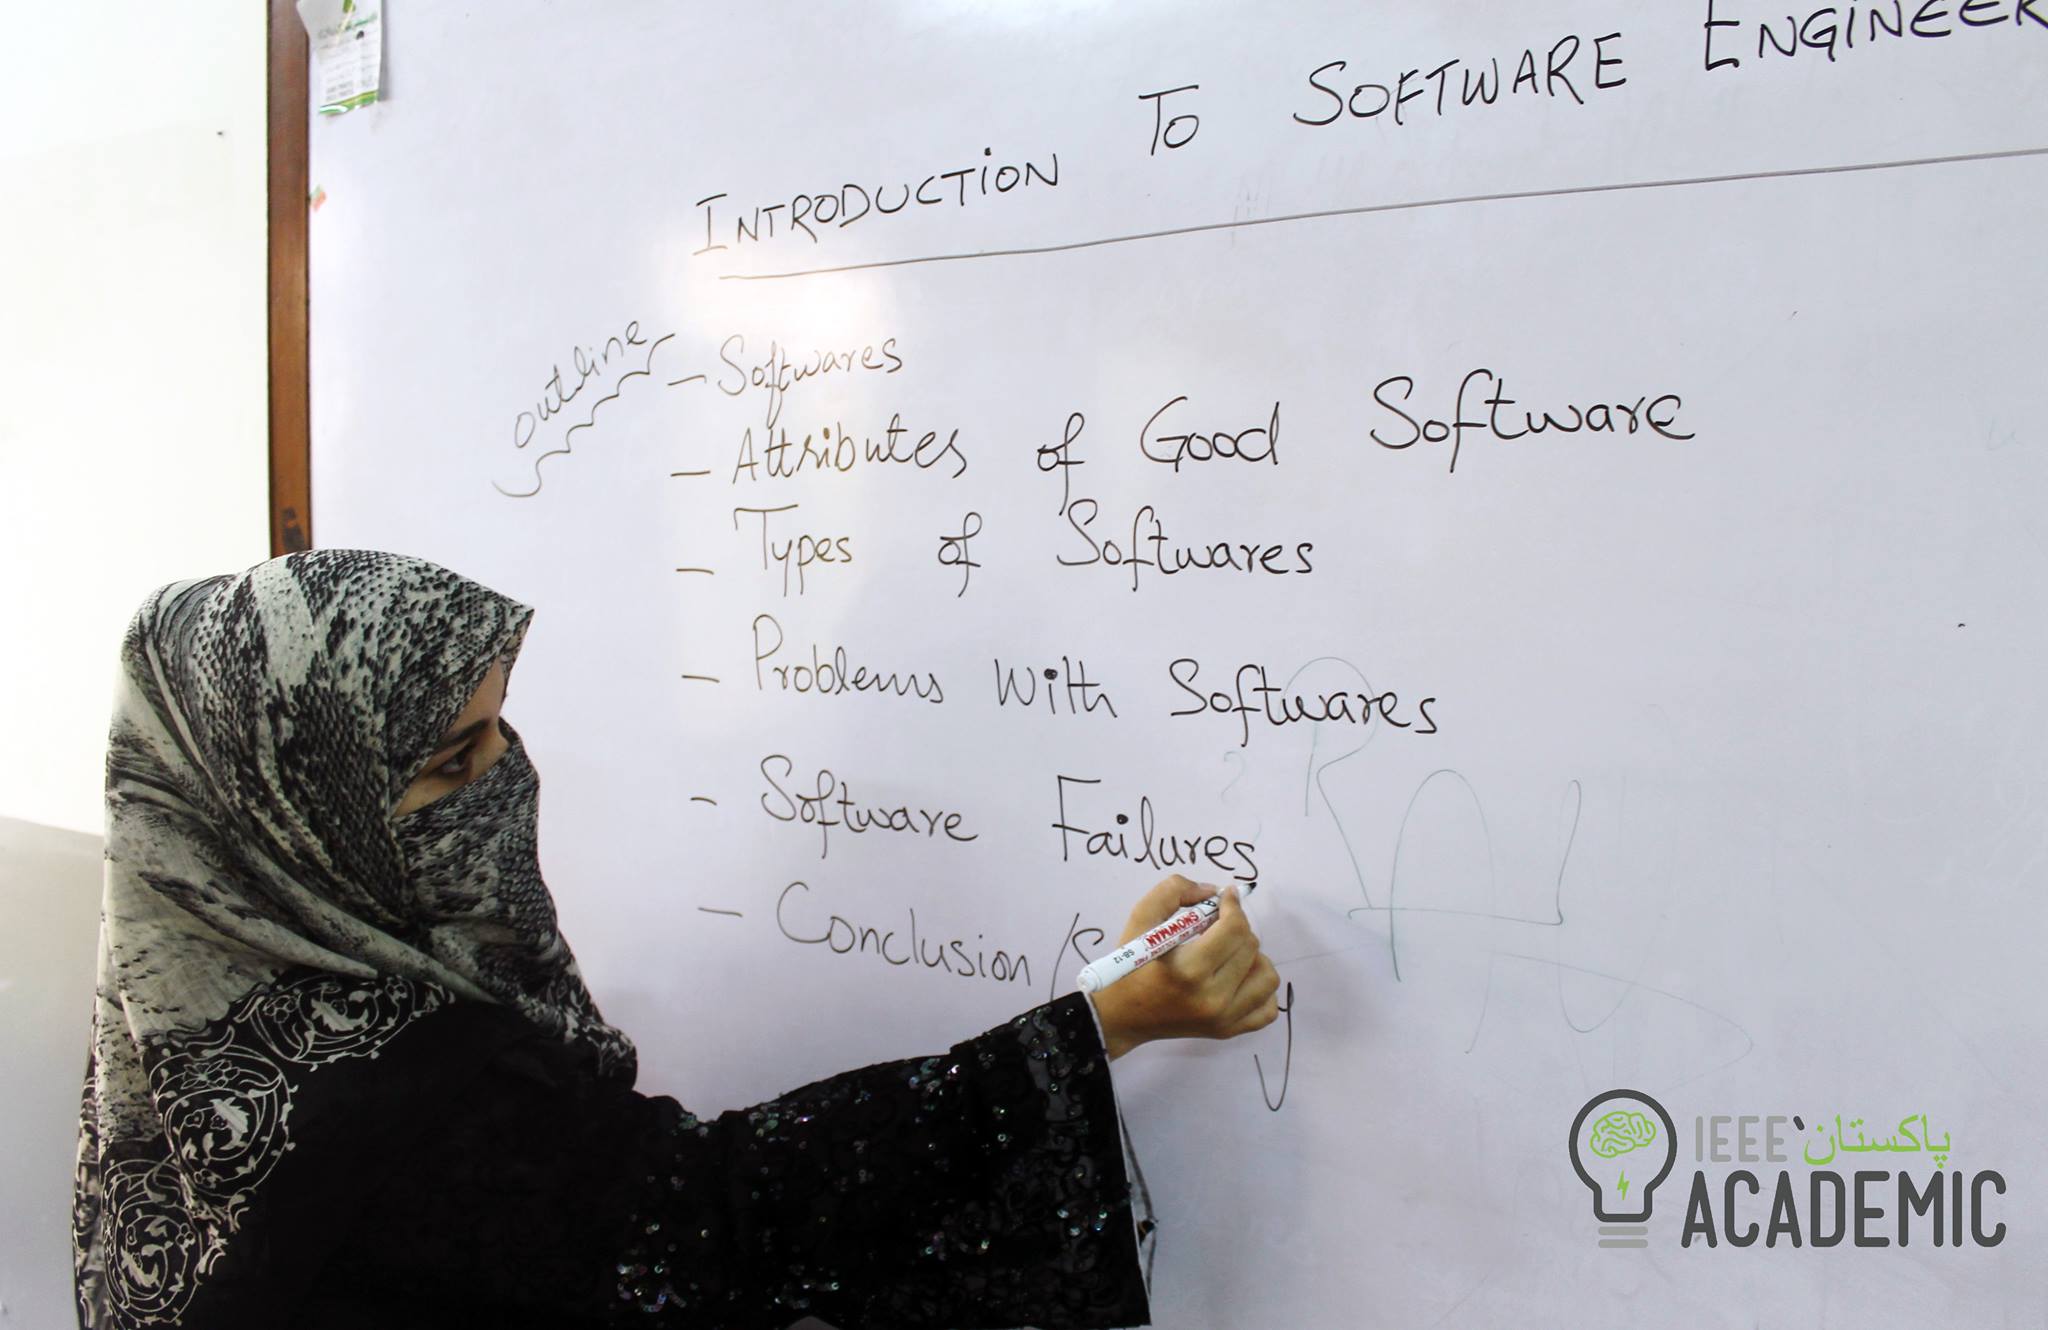 INTRODUCTION TO SOFTWARE ENGINEER
outline
- Softwares
- Attributes of Good Software
- Types of Softwares
- Problems With Softwares
- Software Failures
- Conclusion /S y
SNOWMAN
SB-12
IEEE پاکستان
ACADEMIC